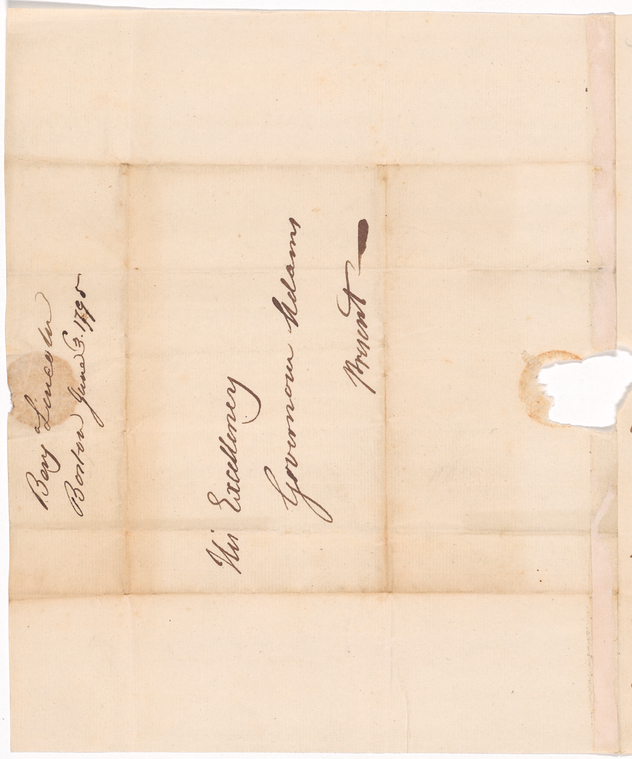 Benj Lincoln
Boston June 3. 1795
His Excellency
Governour Adams
Present